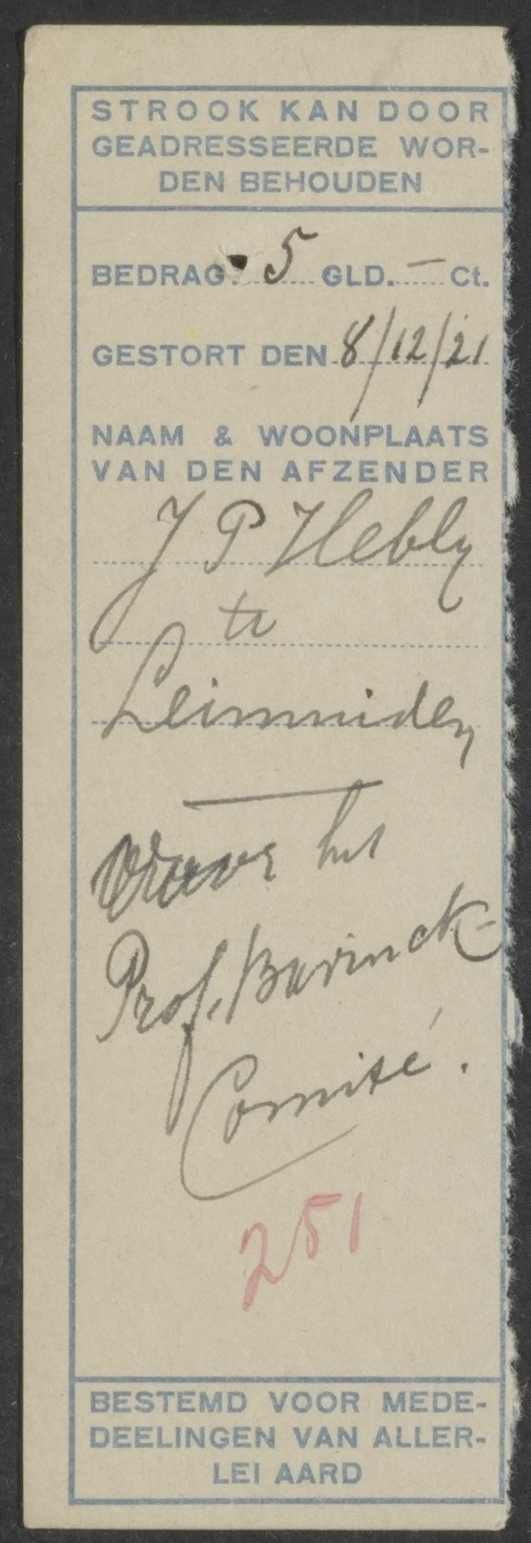 STROOK KAN DOOR
GEADRESSEERDE WOR-
DEN BEHOUDEN
BEDRAG: 5 GLD. — Ct.
GESTORT DEN 8/12/21
NAAM & WOONPLAATS
VAN DEN AFZENDER
J P Hebly
te
Leimuiden
voor het
Prof. Bavinck-
Comité.
251
BESTEMD VOOR MEDE-
DEELINGEN VAN ALLER-
LEI AARD